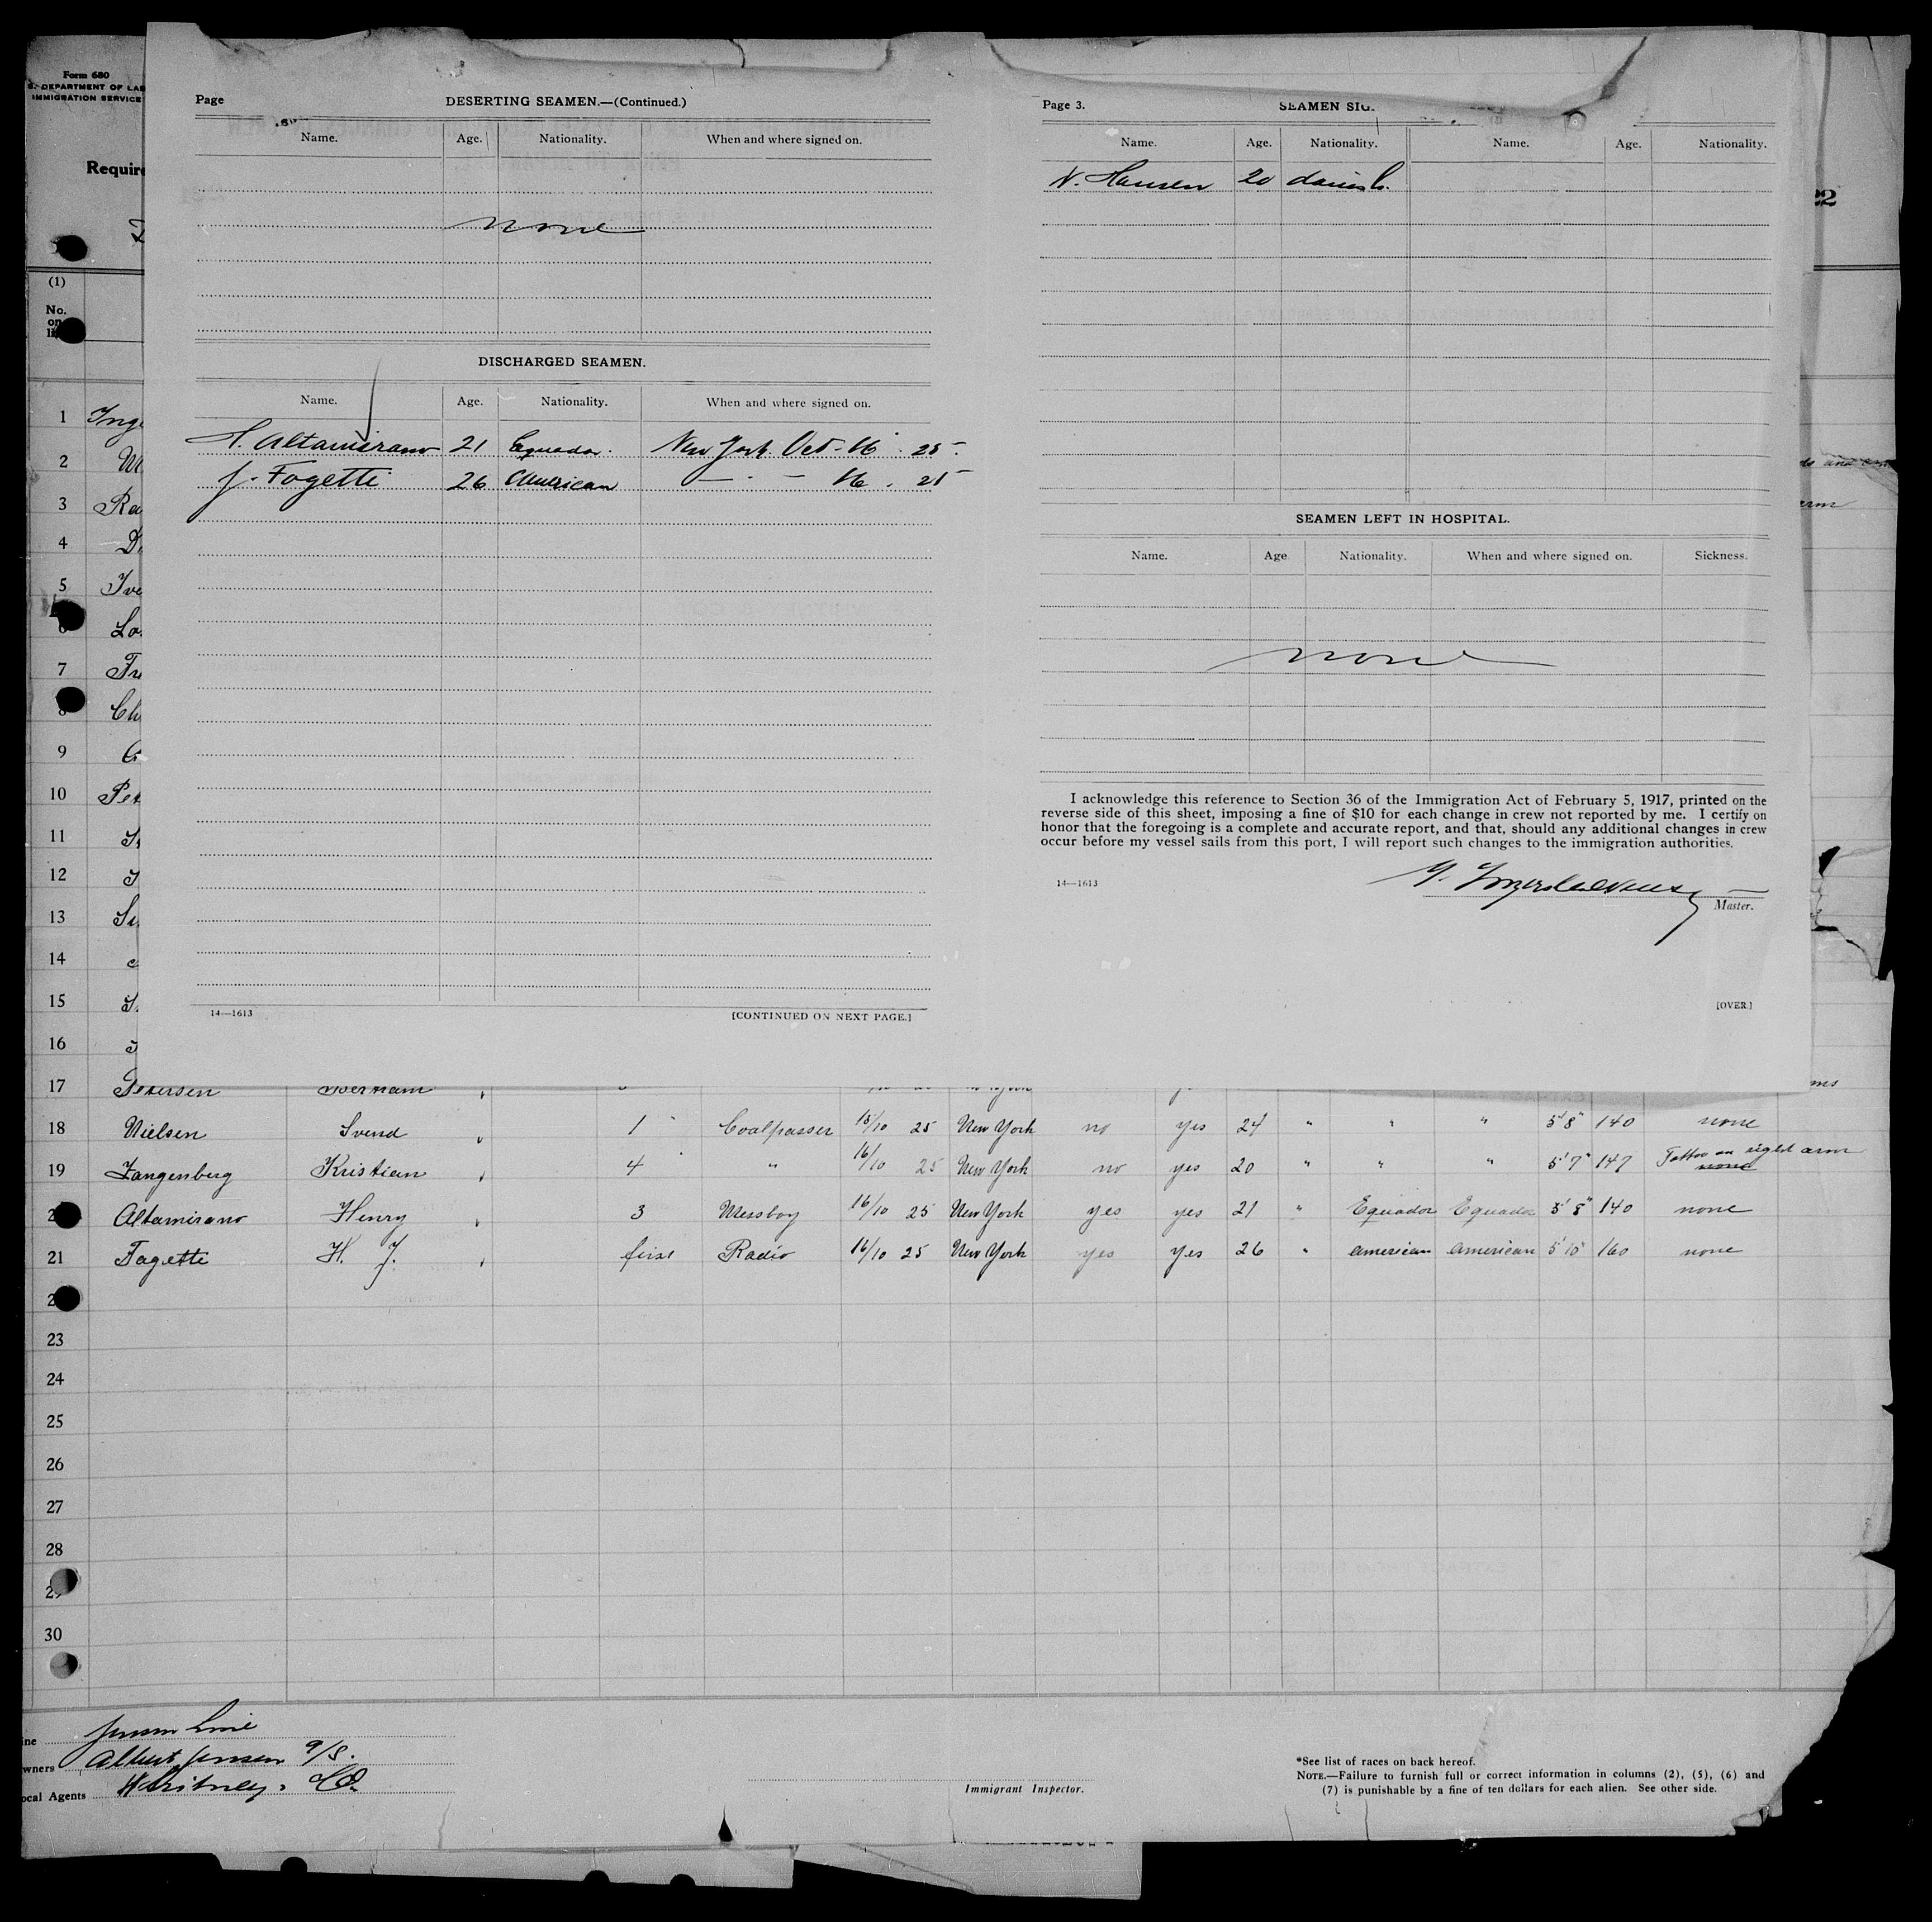 Form 680
S. DEPARTMENT OF LAB
IMMIGRATION SERVICE
Require
(1)
No.
on
Page
DESERTING SEAMEN.—(Continued.)
Name. Age. Nationality. When and where signed on.
none
DISCHARGED SEAMEN.
Name. Age. Nationality. When and where signed on.
H. Altamirano 21 Equador. New York. Oct - 16 . 25 -
J. Fogetti 26 American — . — 16 . 25
14—1613
[CONTINUED ON NEXT PAGE.]
Page 3.
SEAMEN SIG
Name. Age. Nationality. Name. Age. Nationality.
N. Hansen 20 danish.
SEAMEN LEFT IN HOSPITAL.
Name. Age Nationality. When and where signed on. Sickness.
none
I acknowledge this reference to Section 36 of the Immigration Act of February 5, 1917, printed on the
reverse side of this sheet, imposing a fine of $10 for each change in crew not reported by me. I certify on
honor that the foregoing is a complete and accurate report, and that, should any additional changes in crew
occur before my vessel sails from this port, I will report such changes to the immigration authorities.
14—1613
Master.
[OVER.]
22
1 Inge
2
3 Ra
arm
4 D
5 Ive
6 Lo
7 Fre
8 Ch
9
10 Pet
11
12
13
14
15
16
17 Petersen Bertram
18 Nielsen Svend " 1 " Coalpasser 15/10 25 New York no yes 24 " " " 5' 8" 140 none
19 Zangenberg Kristian " 4 " " 16/10 25 New York no yes 20 " " " 5' 7" 147 Tattoo on right arm
none
2 Altamirano Henry " 3 Messboy 16/10 25 New York yes yes 21 " Equador Equador 5' 8" 140 none
21 Fagette H. J. " first Radio 16/10 25 New York yes Yes 26 " american american 5' 10" 160 none
2
23
24
25
26
27
28
29
30
ine Jensen Line
wners Albert Jensen a/s.
ocal Agents Whitney & Co.
Immigrant Inspector.
*See list of races on back hereof.
NOTE.—Failure to furnish full or correct information in columns (2), (5), (6) and
(7) is punishable by a fine of ten dollars for each alien. See other side.